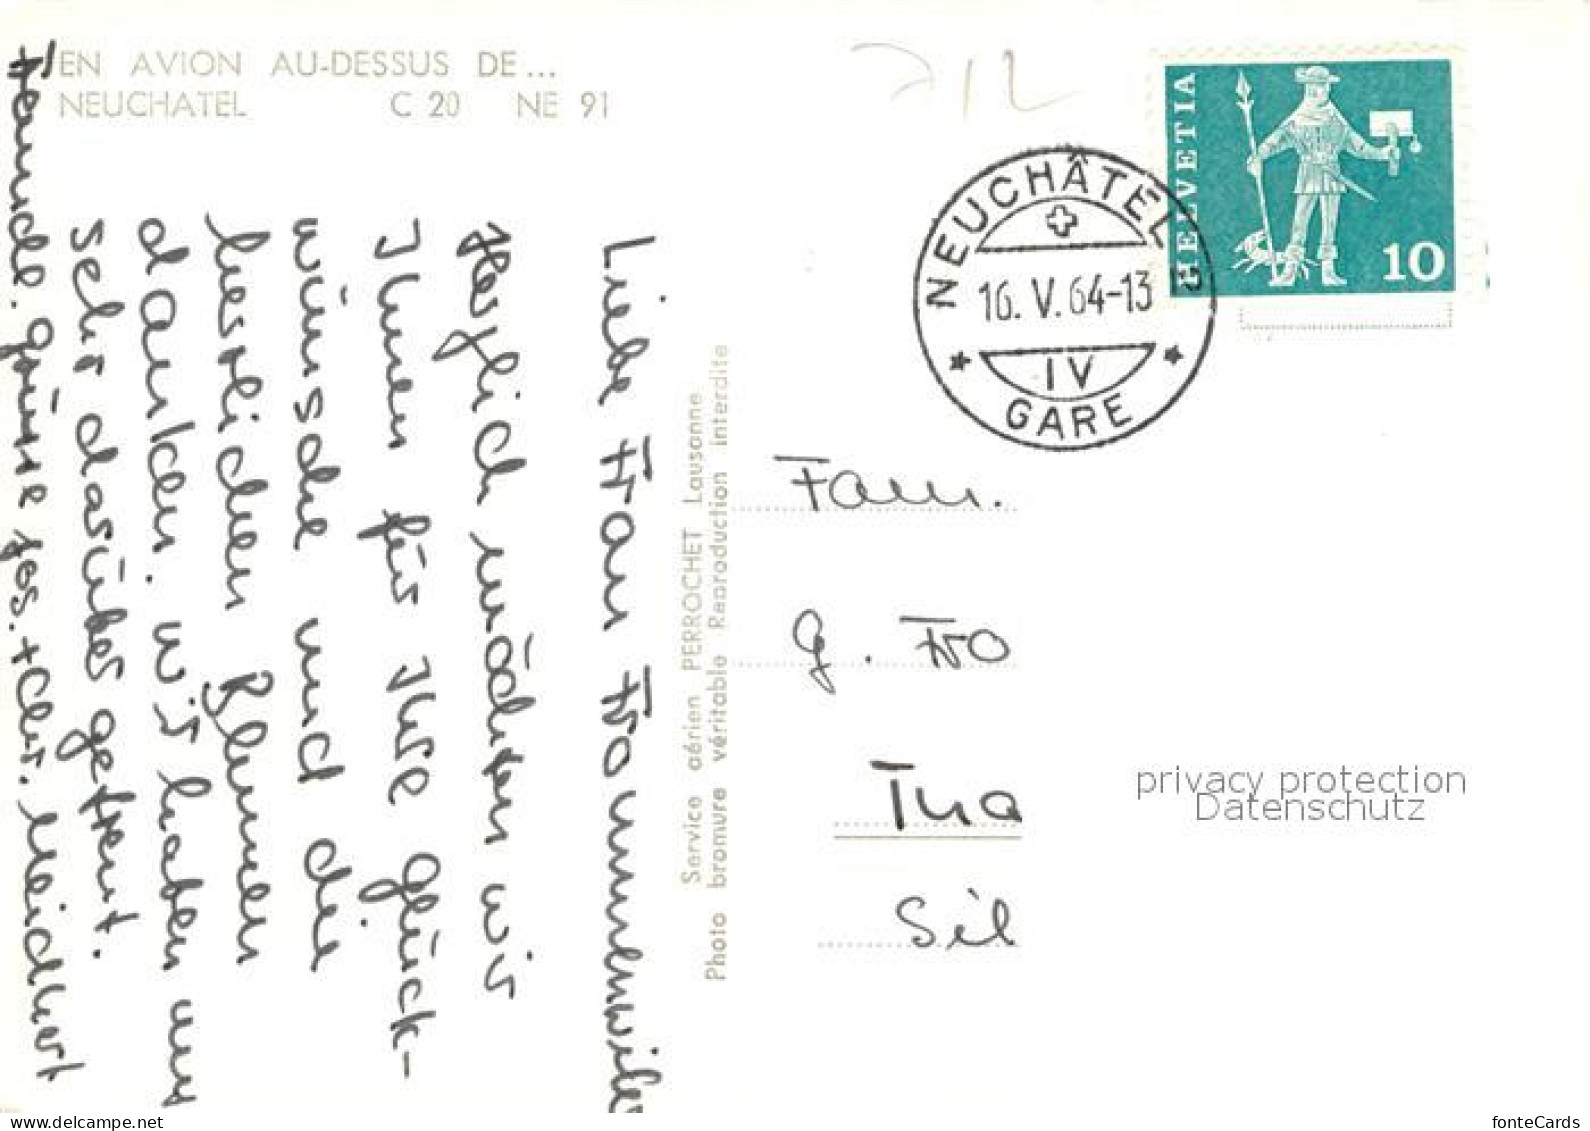 EN AVION AU-DESSUS DE...
NEUCHATEL C 20 NE 91
Liebe Frau Frommenwiler
Herzlich möchten wir
Ihnen für Ihre Glück-
wünsche und die
herrlichen Blumen
danken. Wir haben uns
sehr darüber gefreut.
Freundl. Grüsse Jos. + Chr. Meichhort
Service aérien PERROCHET Lausanne
Photo bromure véritable Reproduction interdite
712
NEUCHÂTEL 2
16.V.64-13
IV
GARE
HELVETIA
10
Fam.
G. Fro
Tha
Sil
privacy protection
Datenschutz
www.delcampe.net
fonteCards